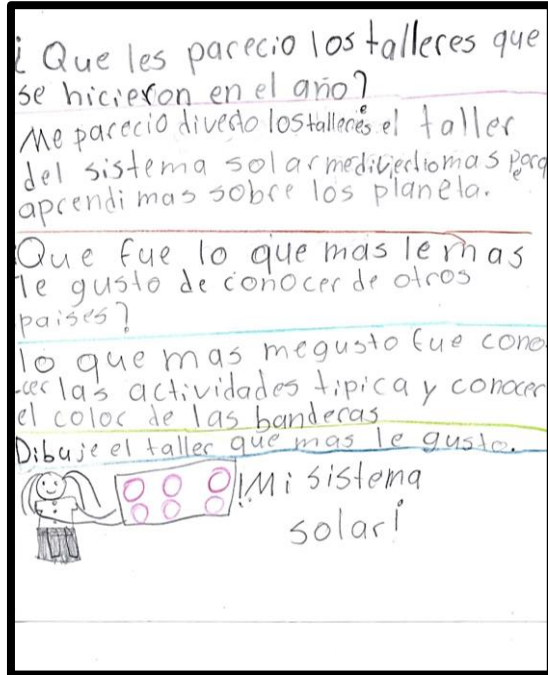 ¿Que les parecio los talleres que
se hicieron en el año?
Me parecio diverto los talleres el taller
del sistema solar me divirtio mas porq
aprendi mas sobre los planeta.
Que fue lo que mas le mas
le gusto de conocer de otros
paises?
lo que mas me gusto fue cono-
cer las actividades tipica y conocer
el color de las banderas
Dibuje el taller que mas le gusto.
!Mi sistema
solar¡